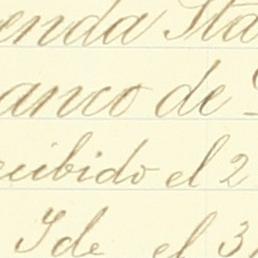 enda Sta
anco de
cibido el 2
Id e el 3